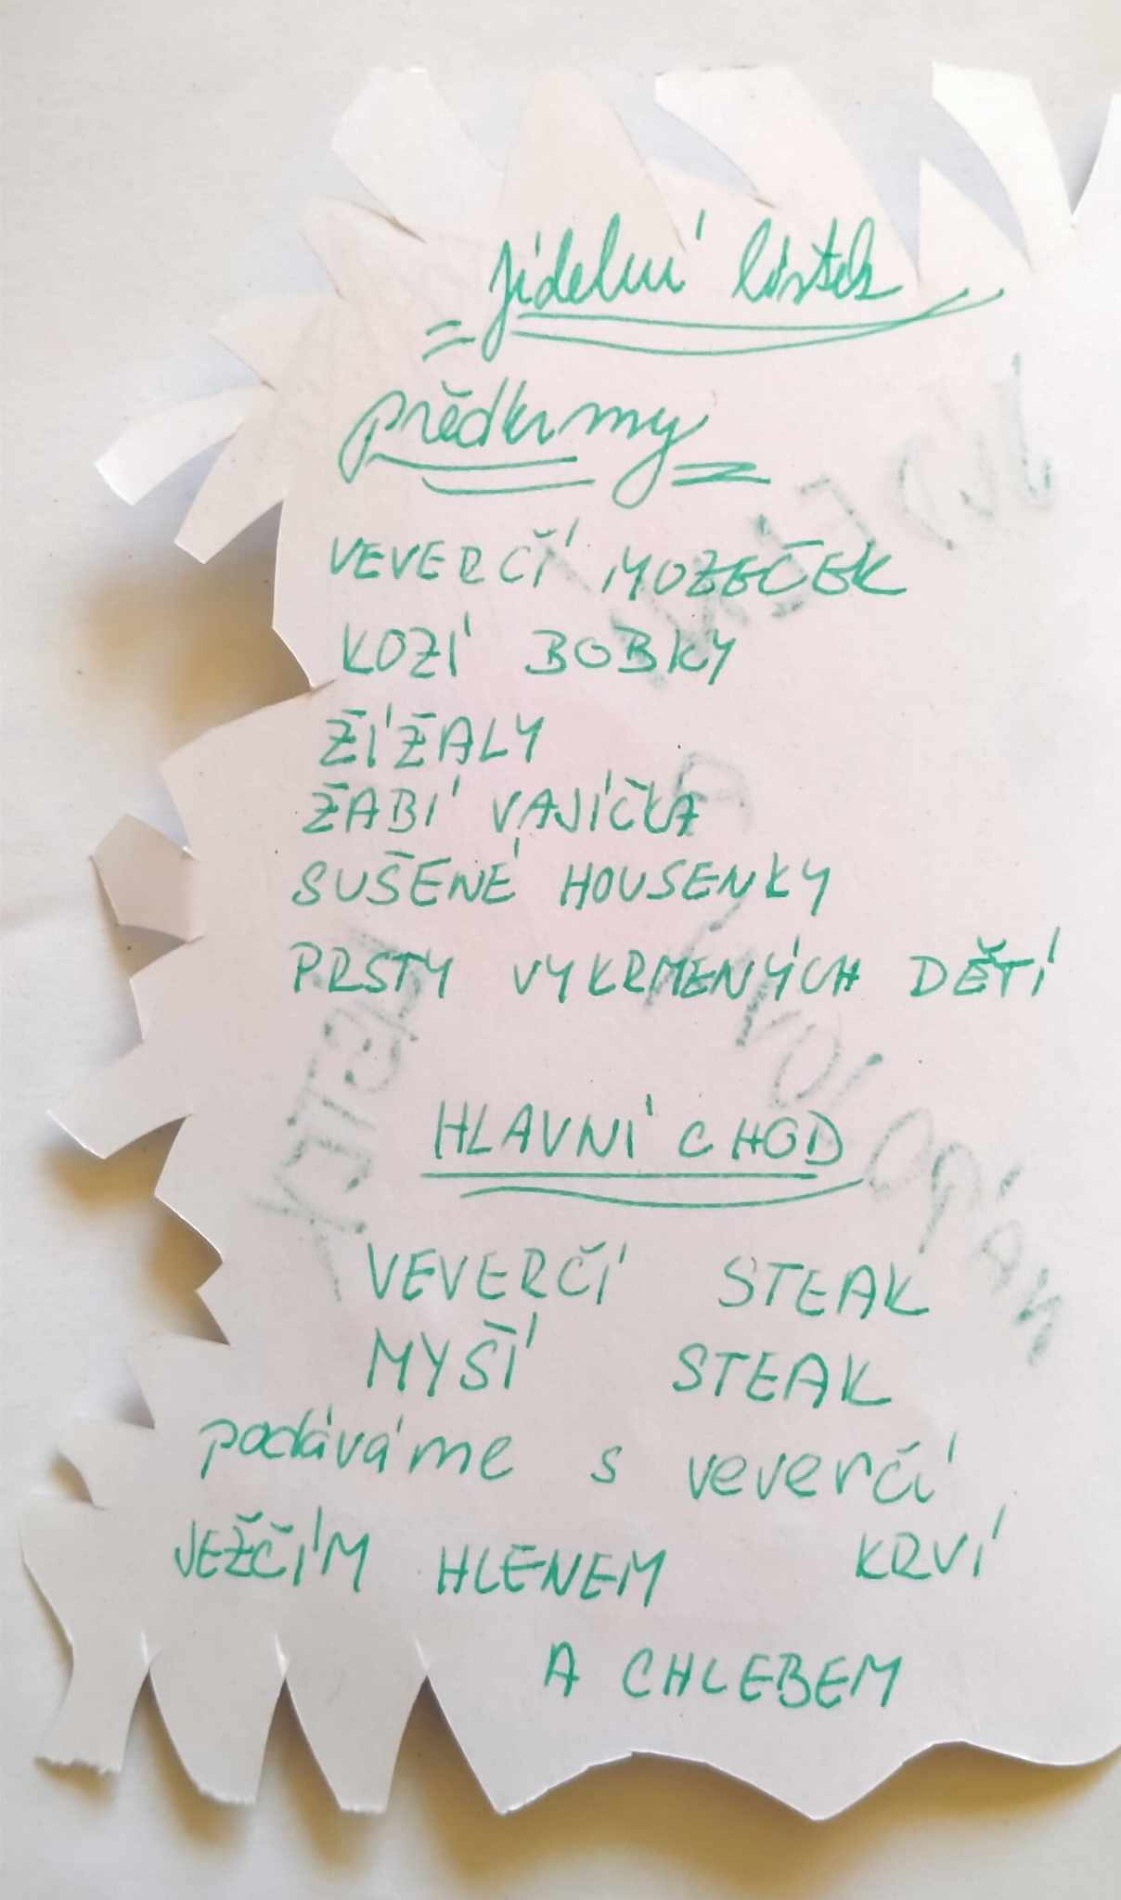 jídelní lístek
předkrmy
VEVERČÍ MOZEČEK
KOZÍ BOBKY
ŽÍŽALY
ŽABÍ VAJÍČKA
SUŠENÉ HOUSENKY
PRSTY VYKRMENÝCH DĚTÍ
HLAVNÍ CHOD
VEVERČÍ STEAK
MYŠÍ STEAK
podáváme s veverčí
KRVÍ
JEŽČÍM HLENEM
A CHLEBEM